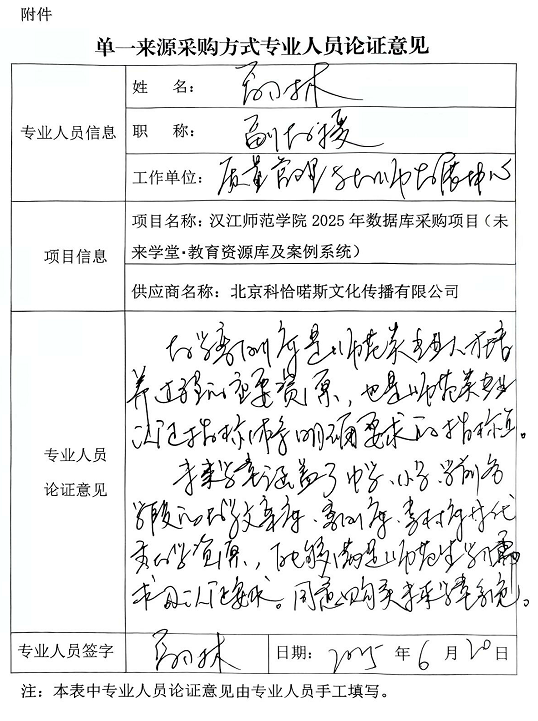 附件
单一来源采购方式专业人员论证意见
专业人员信息
姓 名：
职 称：副教授
工作单位：质量管理与教师发展中心
项目信息
项目名称：汉江师范学院 2025 年数据库采购项目（未
来学堂·教育资源库及案例系统）
供应商名称：北京科恰喏斯文化传播有限公司
专业人员
论证意见
教学案例库是师范类专业人才培
养过程的重要资源，也是师范类专业
认证指标体系明确要求的指标点。
未来学堂涵盖了中学、小学、学前各
学段的教学文章库、案例库、素材库等优
质教学资源，能够满足师范生学习需
求及认证要求。同意购买未来学堂系统。
专业人员签字
日期：2025 年 6 月 20 日
注：本表中专业人员论证意见由专业人员手工填写。